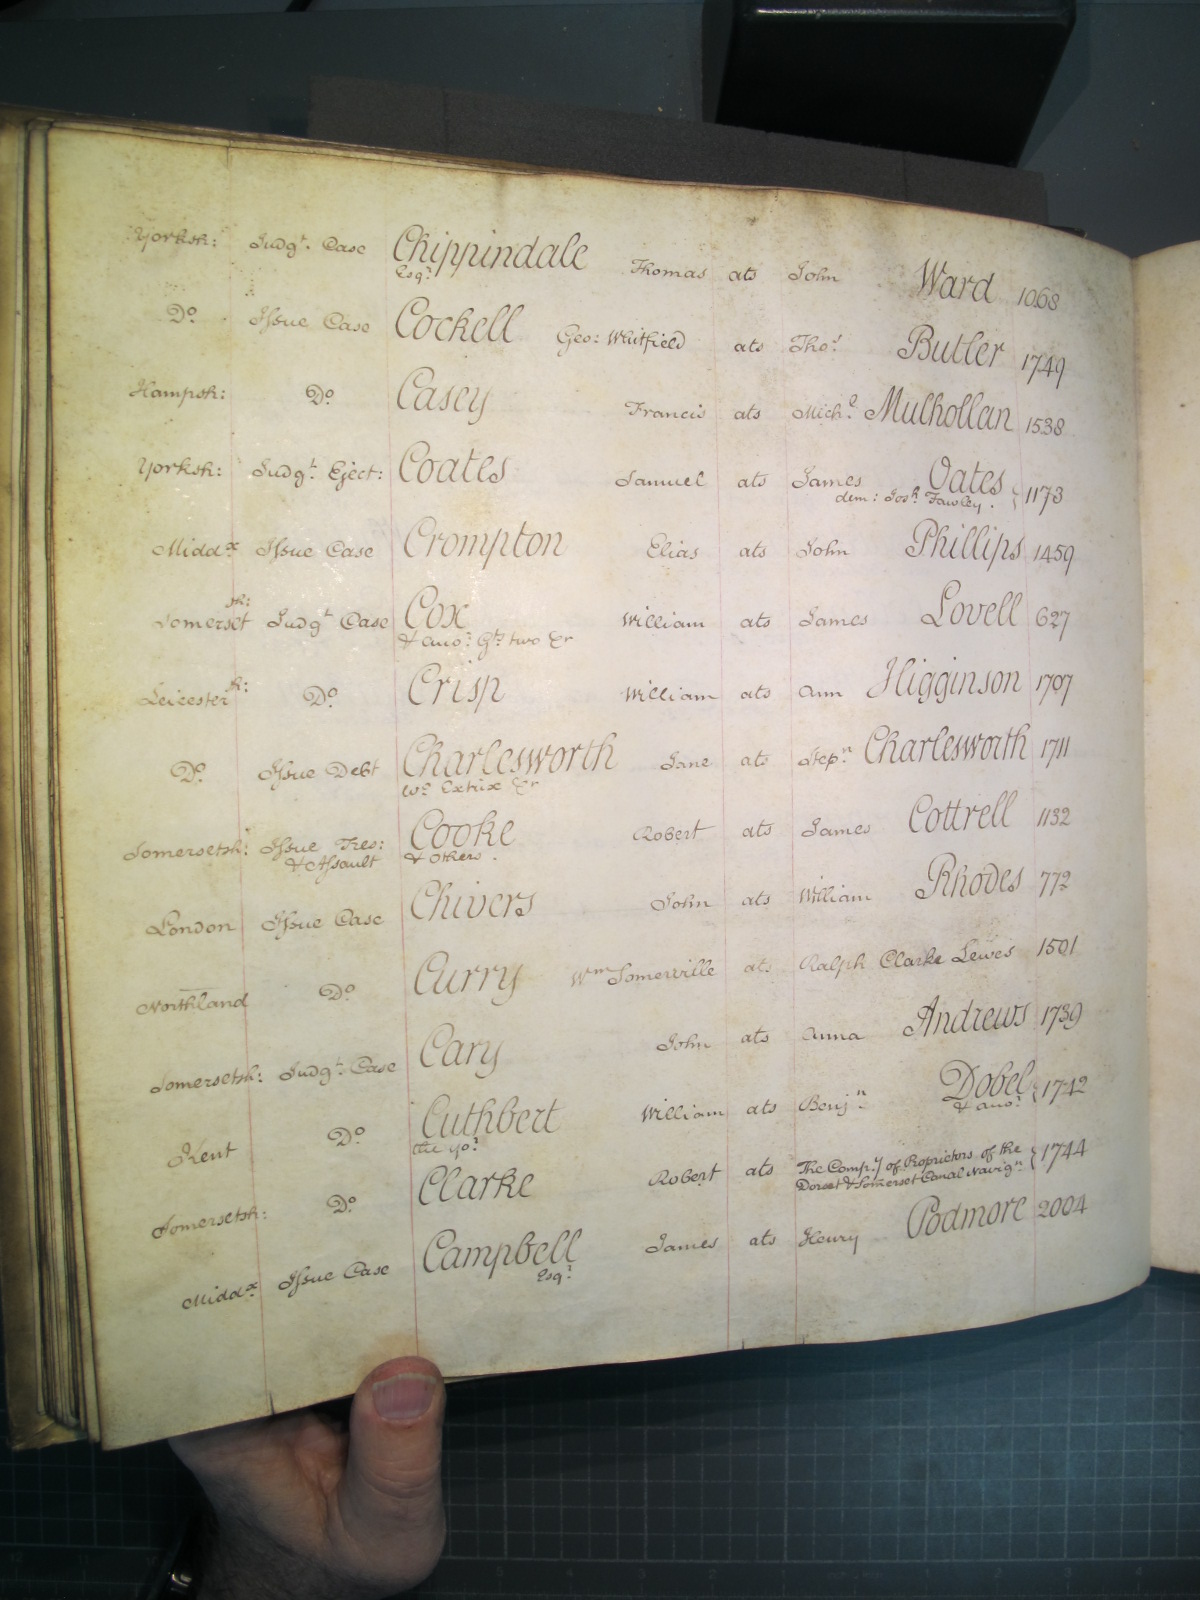 Yorksh: Judgt. Case Chippindale Thomas ats John Ward 1068
Esqr.
Do. Issue Case Cockell Geo: Whitfield ats Thos. Butler 1749
Hampsh: Do. Casey Francis ats Michl. Mulhollan 1538
Yorksh: Judgt. Eject: Coates Samuel ats James Oates 1173
dem: Josh. Fawley.
Middx. Issue Case Crompton Elias ats John Phillips 1459
Somersetsh: Judgt. Case Cox William ats James Lovell 627
& anor. Gts. two Er
Leicestersh: Do. Crisp William ats Ann Higginson 1707
Do. Issue Debt Charlesworth Jane ats Stepn. Charlesworth 1711
wo. Extrix Er
Somersetsh: Issue Tres: Cooke Robert ats James Cottrell 1132
& Assault & others.
London Issue Case Chivers John ats William Rhodes 772
Northland Do. Curry Wm. Somerville ats Ralph Clarke Lewes 1501
Somersetsh: Judgt. Case Cary John ats Anna Andrews 1739
Kent Do. Cuthbert William ats Benjn. Dobel 1742
the yor. & anor.
Somersetsh: Do. Clarke Robert ats The Compy. of Proprietors of the 1744
Dorset & Somerset Canal Navign.
Middx. Issue Case Campbell James ats Henry Podmore 2004
Esqr.